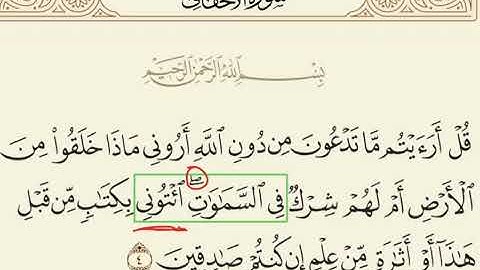 سورة الأحقاف
بِسْمِ اللَّهِ الرَّحْمَٰنِ الرَّحِيمِ
قُلْ أَرَءَيْتُم مَّا تَدْعُونَ مِن دُونِ اللَّهِ أَرُونِي مَاذَا خَلَقُوا۟ مِنَ
الْأَرْضِ أَمْ لَهُمْ شِرْكٌ فِي السَّمَٰوَٰتِ ۖ ائْتُونِي بِكِتَٰبٍ مِّن قَبْلِ
هَٰذَا أَوْ أَثَٰرَةٍ مِّنْ عِلْمٍ إِن كُنتُمْ صَٰدِقِينَ ٤